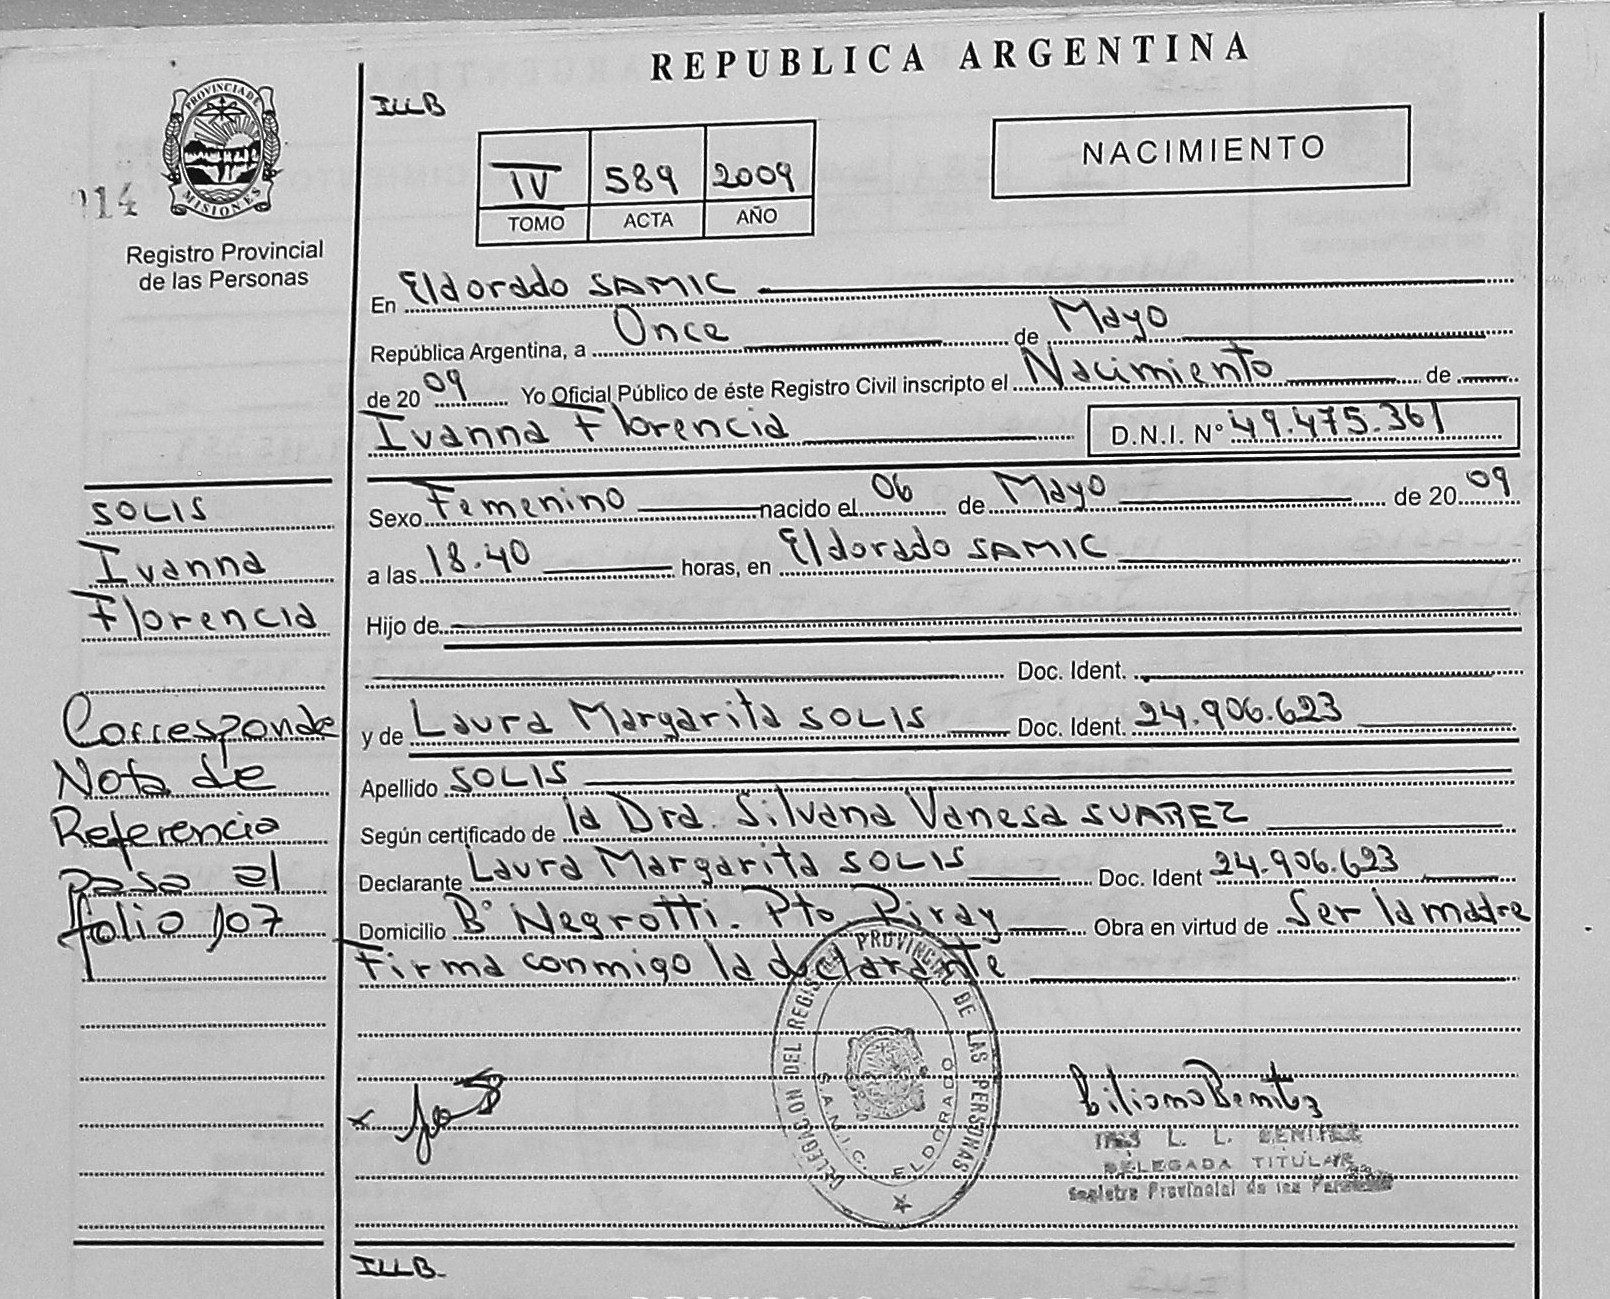 REPUBLICA ARGENTINA
PROVINCIA DE
MISIONES
914
Registro Provincial
de las Personas
ILLB
IV 589 2009
TOMO ACTA AÑO
NACIMIENTO
En Eldorado SAMIC
República Argentina, a Once de Mayo
de 2009 Yo Oficial Público de éste Registro Civil inscripto el Nacimiento de
Ivanna Florencia D.N.I. N° 49.475.361
Sexo Femenino nacido el 06 de Mayo de 2009
a las 18.40 horas, en Eldorado SAMIC
Hijo de
Doc. Ident.
y de Laura Margarita SOLIS Doc. Ident. 24.906.623
Apellido SOLIS
Según certificado de la Dra. Silvana Vanesa SUAREZ
Declarante Laura Margarita SOLIS Doc. Ident 24.906.623
Domicilio B° Negrotti. Pto Piray Obra en virtud de Ser la madre
Firma conmigo la declarante
SOLIS
Ivanna
Florencia
Corresponde
Nota de
Referencia
Pasa al
folio 107
DELEGACION DEL REGISTRO PROVINCIAL DE LAS PERSONAS
S.A.M.I.C. ELDORADO
L. L. BENITEZ
DELEGADA TITULAR
Registro Provincial de las Personas
ILLB